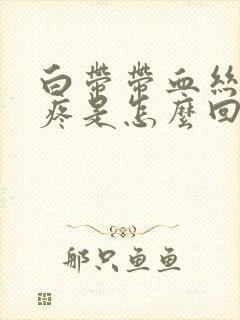 白帶帶血絲
疼是怎麼回
那只魚魚